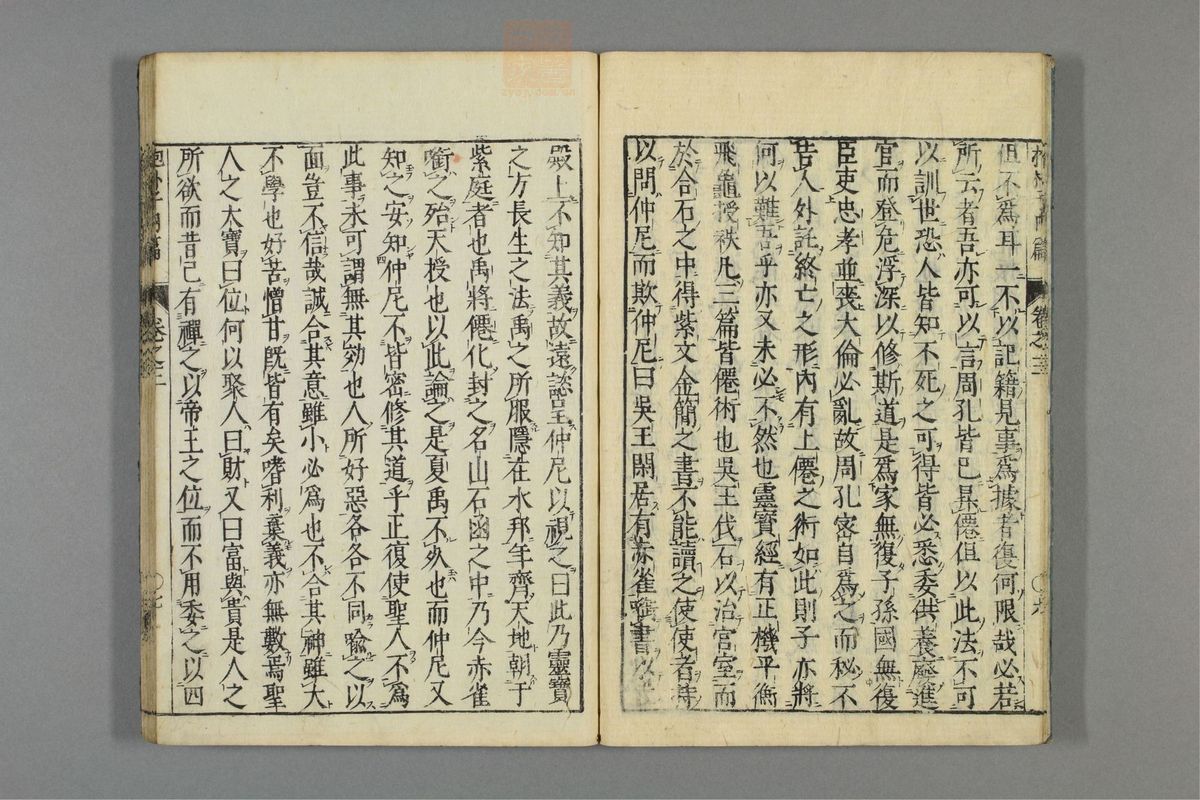 但不爲耳一不以記籍見事爲據者復何限哉必若
所云者吾亦可以言周孔皆已昇僊但以此法不可
以訓世恐人皆知不死之可得皆必悉委供養廢進
官而登危浮深以修斯道是爲家無復子孫國無復
臣吏忠孝並喪大倫必亂故周孔密自爲之而秘不
告人外託終亡之形內有上僊之術如此則子亦將
何以難吾乎亦又未必不然也靈寶經有正機平衡
飛龜授袟凡三篇皆僊術也吳王伐石以治宮室而
於合石之中得紫文金簡之書不能讀之使使者持
以問仲尼而欺仲尼曰吳王閑居有赤雀㘅書以
殿上不知其義故遠諮呈仲尼以視之曰此乃靈寶
之方長生之法禹之所服隱在水邦年齊天地朝于
紫庭者也禹將僊化封之名山石函之中乃今赤雀
㘅之殆天授也以此論之是夏禹不死也而仲尼又
知之安知仲尼不皆密修其道乎正復使聖人不爲
此事未可謂無其效也人所好惡各各不同喻之以
面豈不信哉誠合其意雖小必爲也不合其神雖大
不學也好苦憎甘旣皆有矣嗜利棄義亦無數焉聖
人之大寶曰位何以聚人曰財又曰富與貴是人之
所欲而昔已有禪之以帝王之位而不用委之以四
抱朴子內篇 卷之三